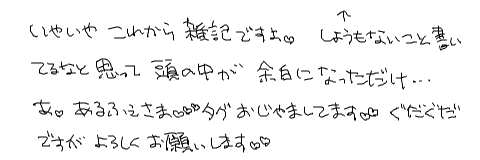 いやいや これから 雑記ですよ♡ ↑しょうもないこと書い
てるなと思って 頭の中が 余白になっただけ…
あ♡ あるふぇさま♡♡♡タグ おじゃましてます♡♡ ぐだぐだ
ですが よろしく お願いします♡♡